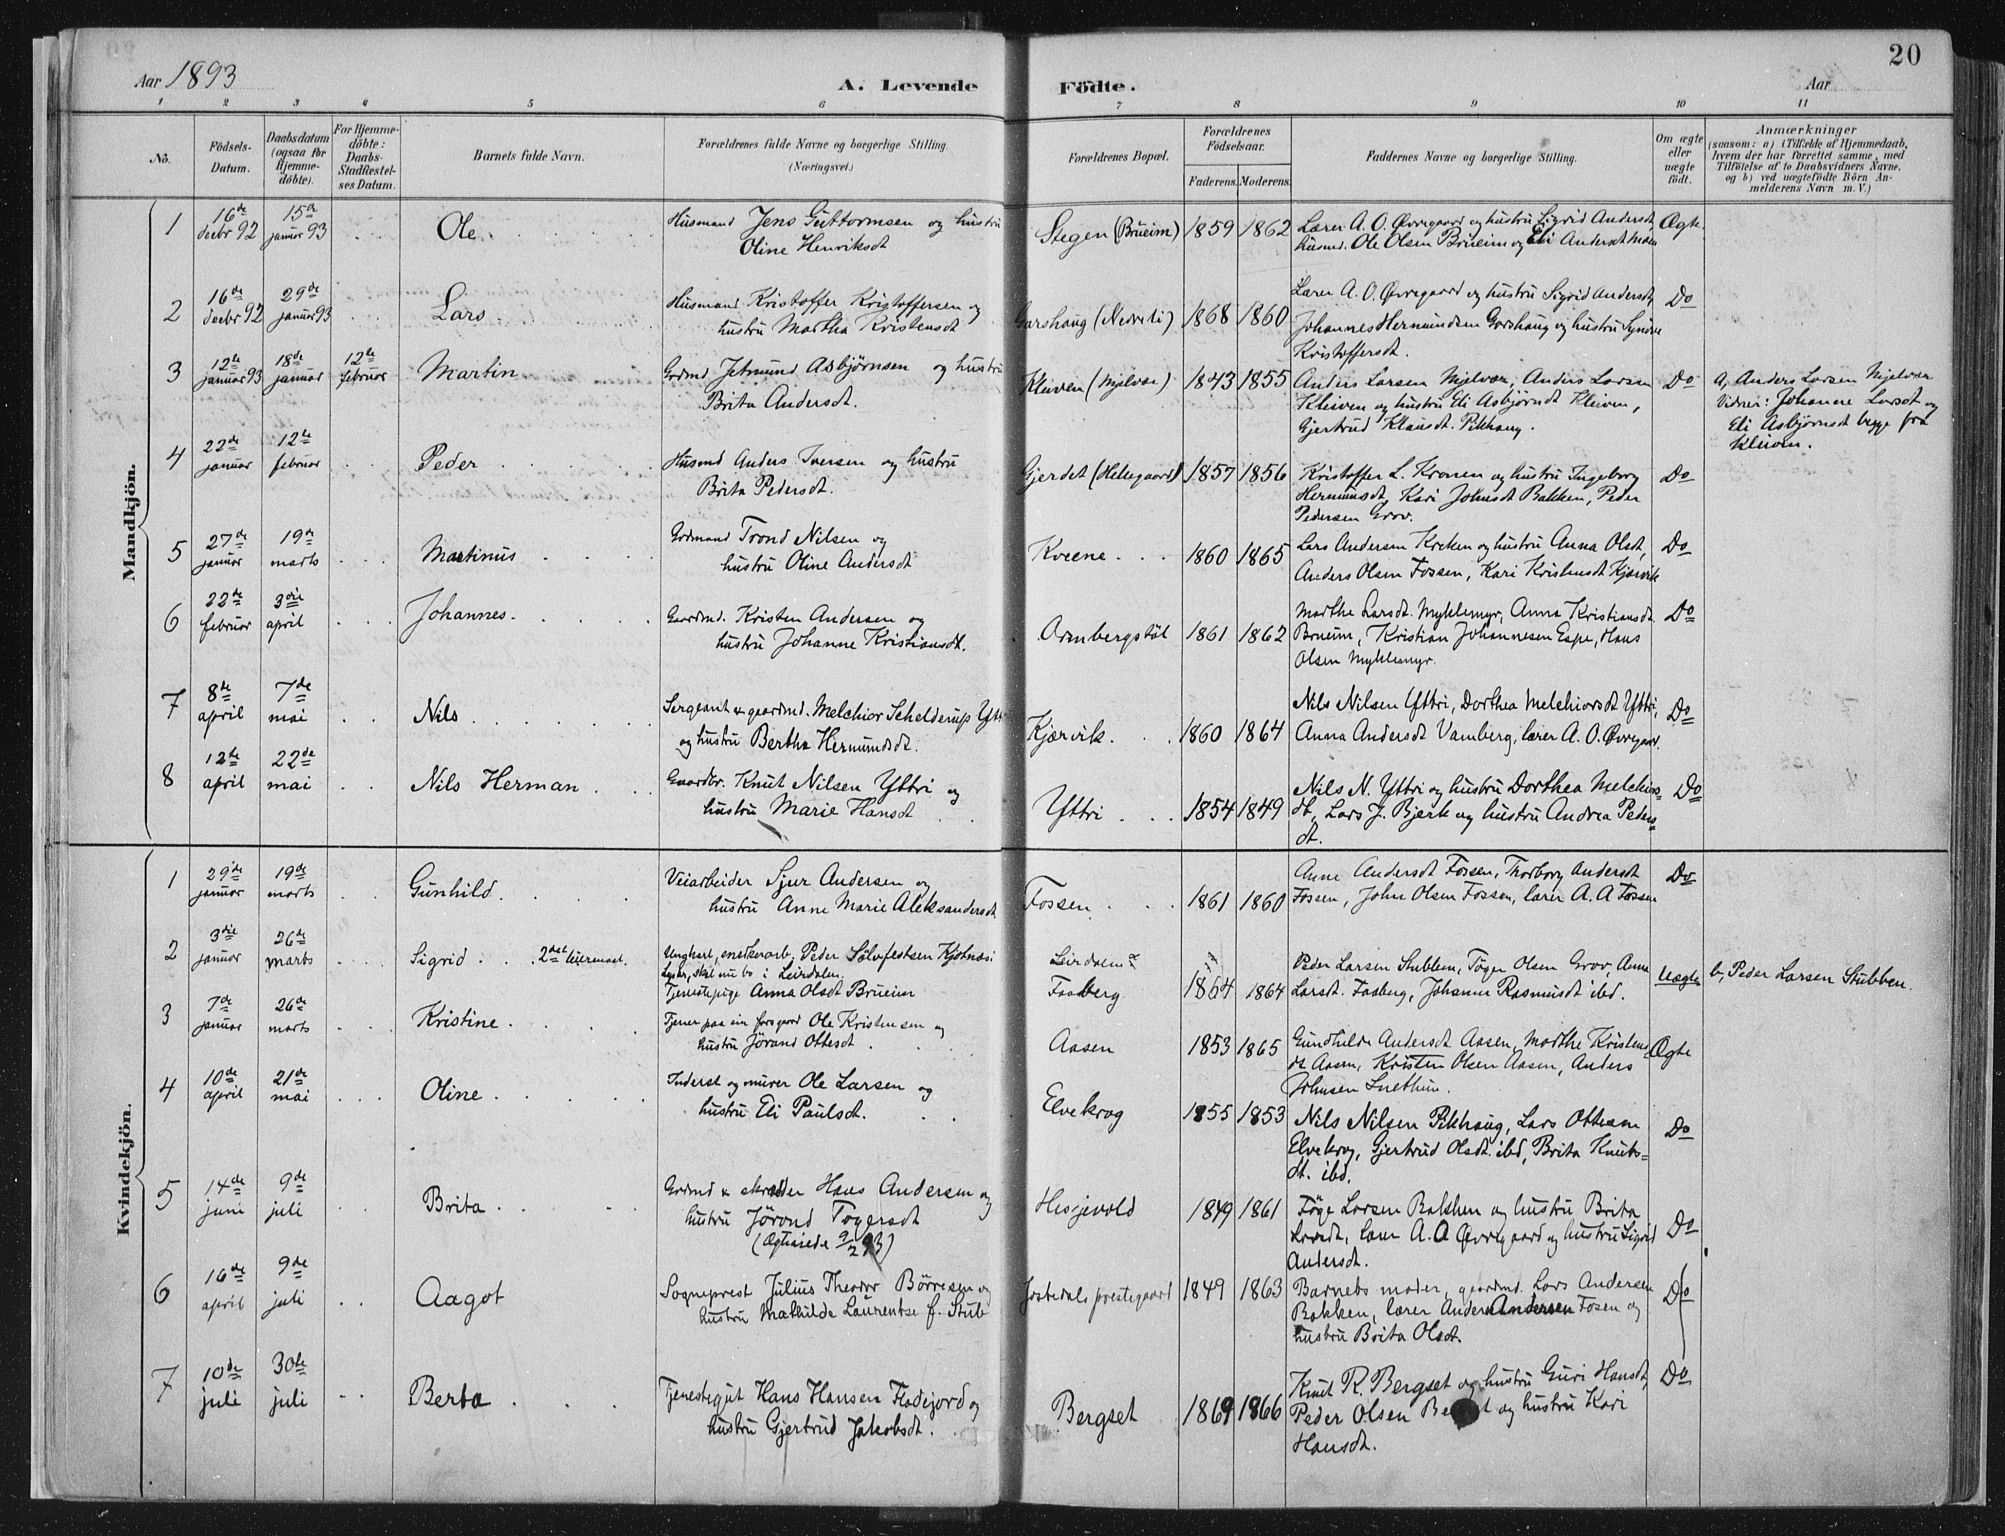 20
Aar 1893
A. Levende Födte.
Aar
1 2 3 4 5 6 7 8 9 10 11
No.
Födsels-Datum.
Daabsdatum (ogsaa for Hjemme-döbte).
For Hjemme-döbte: Daabs-Stadfæstel-ses Datum.
Barnets fulde Navn.
Forældrenes fulde Navne og borgerlige Stilling. (Næringsvei.)
Forældrenes Bopæl.
Forældrenes Födselsaar.
Faderens. Moderens.
Faddernes Navne og borgerlige Stilling.
Om ægte eller uægte födt.
Anmærkninger
(saasom: a) i Tilfælde af Hjemmedaab,
hvem der har forrettet samme, med
Tilföielse af to Daabsvidners Navne.
og b) ved uægtefödte Börn An-
melderens Navn m. V.)
Mandkjön.
1 16de decbr 92 15de januar 93 Ole Husmand Jens Guttormsen og hustru
Oline Henriksdt Stegen (Brueim) 1859 1862 Lærer A. O. Øvregaard og hustru Sigrid Andersdt,
husmd. Ole Olsen Brueim og Eli Andersdt Moen Ægte
2 16de decbr 92 29de januar 93 Lars Husmand Kristoffer Kristoffersen og
hustru Martha Kristensdt Garshaug (Nedreli) 1868 1860 Lærer A. O. Øvregaard og hustru Sigrid Andersdt,
Johannes Hermundsen Garshaug og hustru Synneve
Kristoffersdt. Do
3 12te januar 93 18de januar 12te februar Martin Grdmd Jetmund Asbjørnsen og hustru
Brita Andersdt. Kleiven (Mjelvær) 1843 1855 Anders Larsen Mjelvær, Anders Larsen
Kleiven og hustru Eli Asbjørndt Kleiven,
Gjertrud Klausdt. Pikhaug. Do a, Anders Larsen Mjelvær
Vidner: Johanne Larsdt og
Eli Asbjørnsdt begge fra
Kleiven.
4 22de januar 12te februar Peder Husmd Anders Iversen og hustru
Brita Pedersdt. Gjerdet (Hellegaard) 1857 1856 Kristoffer L. Kronen og hustru Ingeborg
Hermunsdt, Kari Johnsdt Bakken, Peder
Pedersen Grov. Do
5 27de januar 19de marts Martinus Grdmand Trond Nilsen og
hustru Oline Andersdt Kveene 1860 1865 Lars Andersen Kreken og hustru Anna Olsdt,
Anders Olsen Fossen, Kari Kristensdt Kjærvik Do
6 22de februar 3die april Johannes Gaardmd. Kristen Andersen og
hustru Johanne Kristiansdt. Ormbergstøl 1861 1862 Marthe Larsdt. Myklemyr, Anna Kristiansdt.
Brueim, Kristian Johannesen Espe, Hans
Olsen Myklemyr. Do
7 8de april 7de mai Nils Sergeant & gaardmd. Melchior Schelderup Yttri
og hustru Bertha Hermundsdt. Kjærvik 1860 1864 Nils Nilsen Yttri, Dorthea Melchiorsdt Yttri,
Anna Andersdt Vamberg, lærer A. O. Øvregaard. Do
8 12te april 22de mai Nils Herman Gaardbr. Knut Nilsen Yttri og
hustru Marie Hansdt Yttri 1854 1849 Nils N. Yttri og hustru Dorthea Melchiors-
dt, Lars J. Bjerk og hustru Andrea Peders-
dt. Do
Kvindekjön.
1 29de januar 19de marts Gunhild Veiarbeider Sjur Andersen og
hustru Anne Marie Aleksandersdt Fossen 1861 1860 Anne Andersdt Fossen, Thorborg Andersdt
Fossen, John Olsen Fossen, lærer A. A Fossen Do
2 3die januar 26de marts Sigrid 2det leiermaal. Ungkarl, snedkerarb. Peder Sølvfestsen Kjøsnæs i
Lyster, skal nu bo i Leirdalen.
Tjenestepige Anna Olsdt Brueim Leirdalen &
Faaberg 1864 1864 Peder Larsen Stubben, Tøger Olsen Grov, Anne
Larsdt. Faaberg, Johanne Rasmusdt ibd. Uægte b, Peder Larsen Stubben.
3 7de januar 26de marts Kristine Tjener paa sin farsgaard Ole Kristensen og
hustru Jørand Ottesdt Aasen 1853 1865 Gundhilde Andersdt Aasen, Marthe Kristens
dt Aasen, Kristen Olsen Aasen, Anders
Johnsen Snethun. Ægte
4 10de april 21de mai Oline Inderst og murer Ole Larsen og
hustru Eli Paulsdt. Elvekrog 1855 1853 Nils Nilsen Pikhaug, Lars Ottesen
Elvekrog, Gjertrud Olsdt. ibd, Brita Knuts-
dt. ibd. Do
5 14de juni 9de juli Brita Grdmd & skrædder Hans Andersen og
hustru Jørond Tøgersdt
(Ægteviede 9/2 93) Hesjevold 1849 1861 Tøge Larsen Bakken og hustru Brita
Larsdt, lærer A. O Øvregaard og hustru Sigrid
Andersdt. Do
6 16de april 9de juli Aagot Sogneprest Julius Theodor Børresen og
hustru Mathilde Laurentse f. Stub Jostedals prestegaard 1849 1863 Barnets moder, gaardmd. Lars Andersen
Bakken, lærer Anders Andersen Fosen og
hustru Brita Olsdt. Do
7 10de juli 30te juli Berta Tjenestegut Hans Hansen Fladejord og
hustru Gjertrud Jakobsdt. Bergset 1869 1866 Knut R. Bergset og hustru Guri Hansdt,
Peder Olsen Bergset og hustru Kari
Hansdt. Do